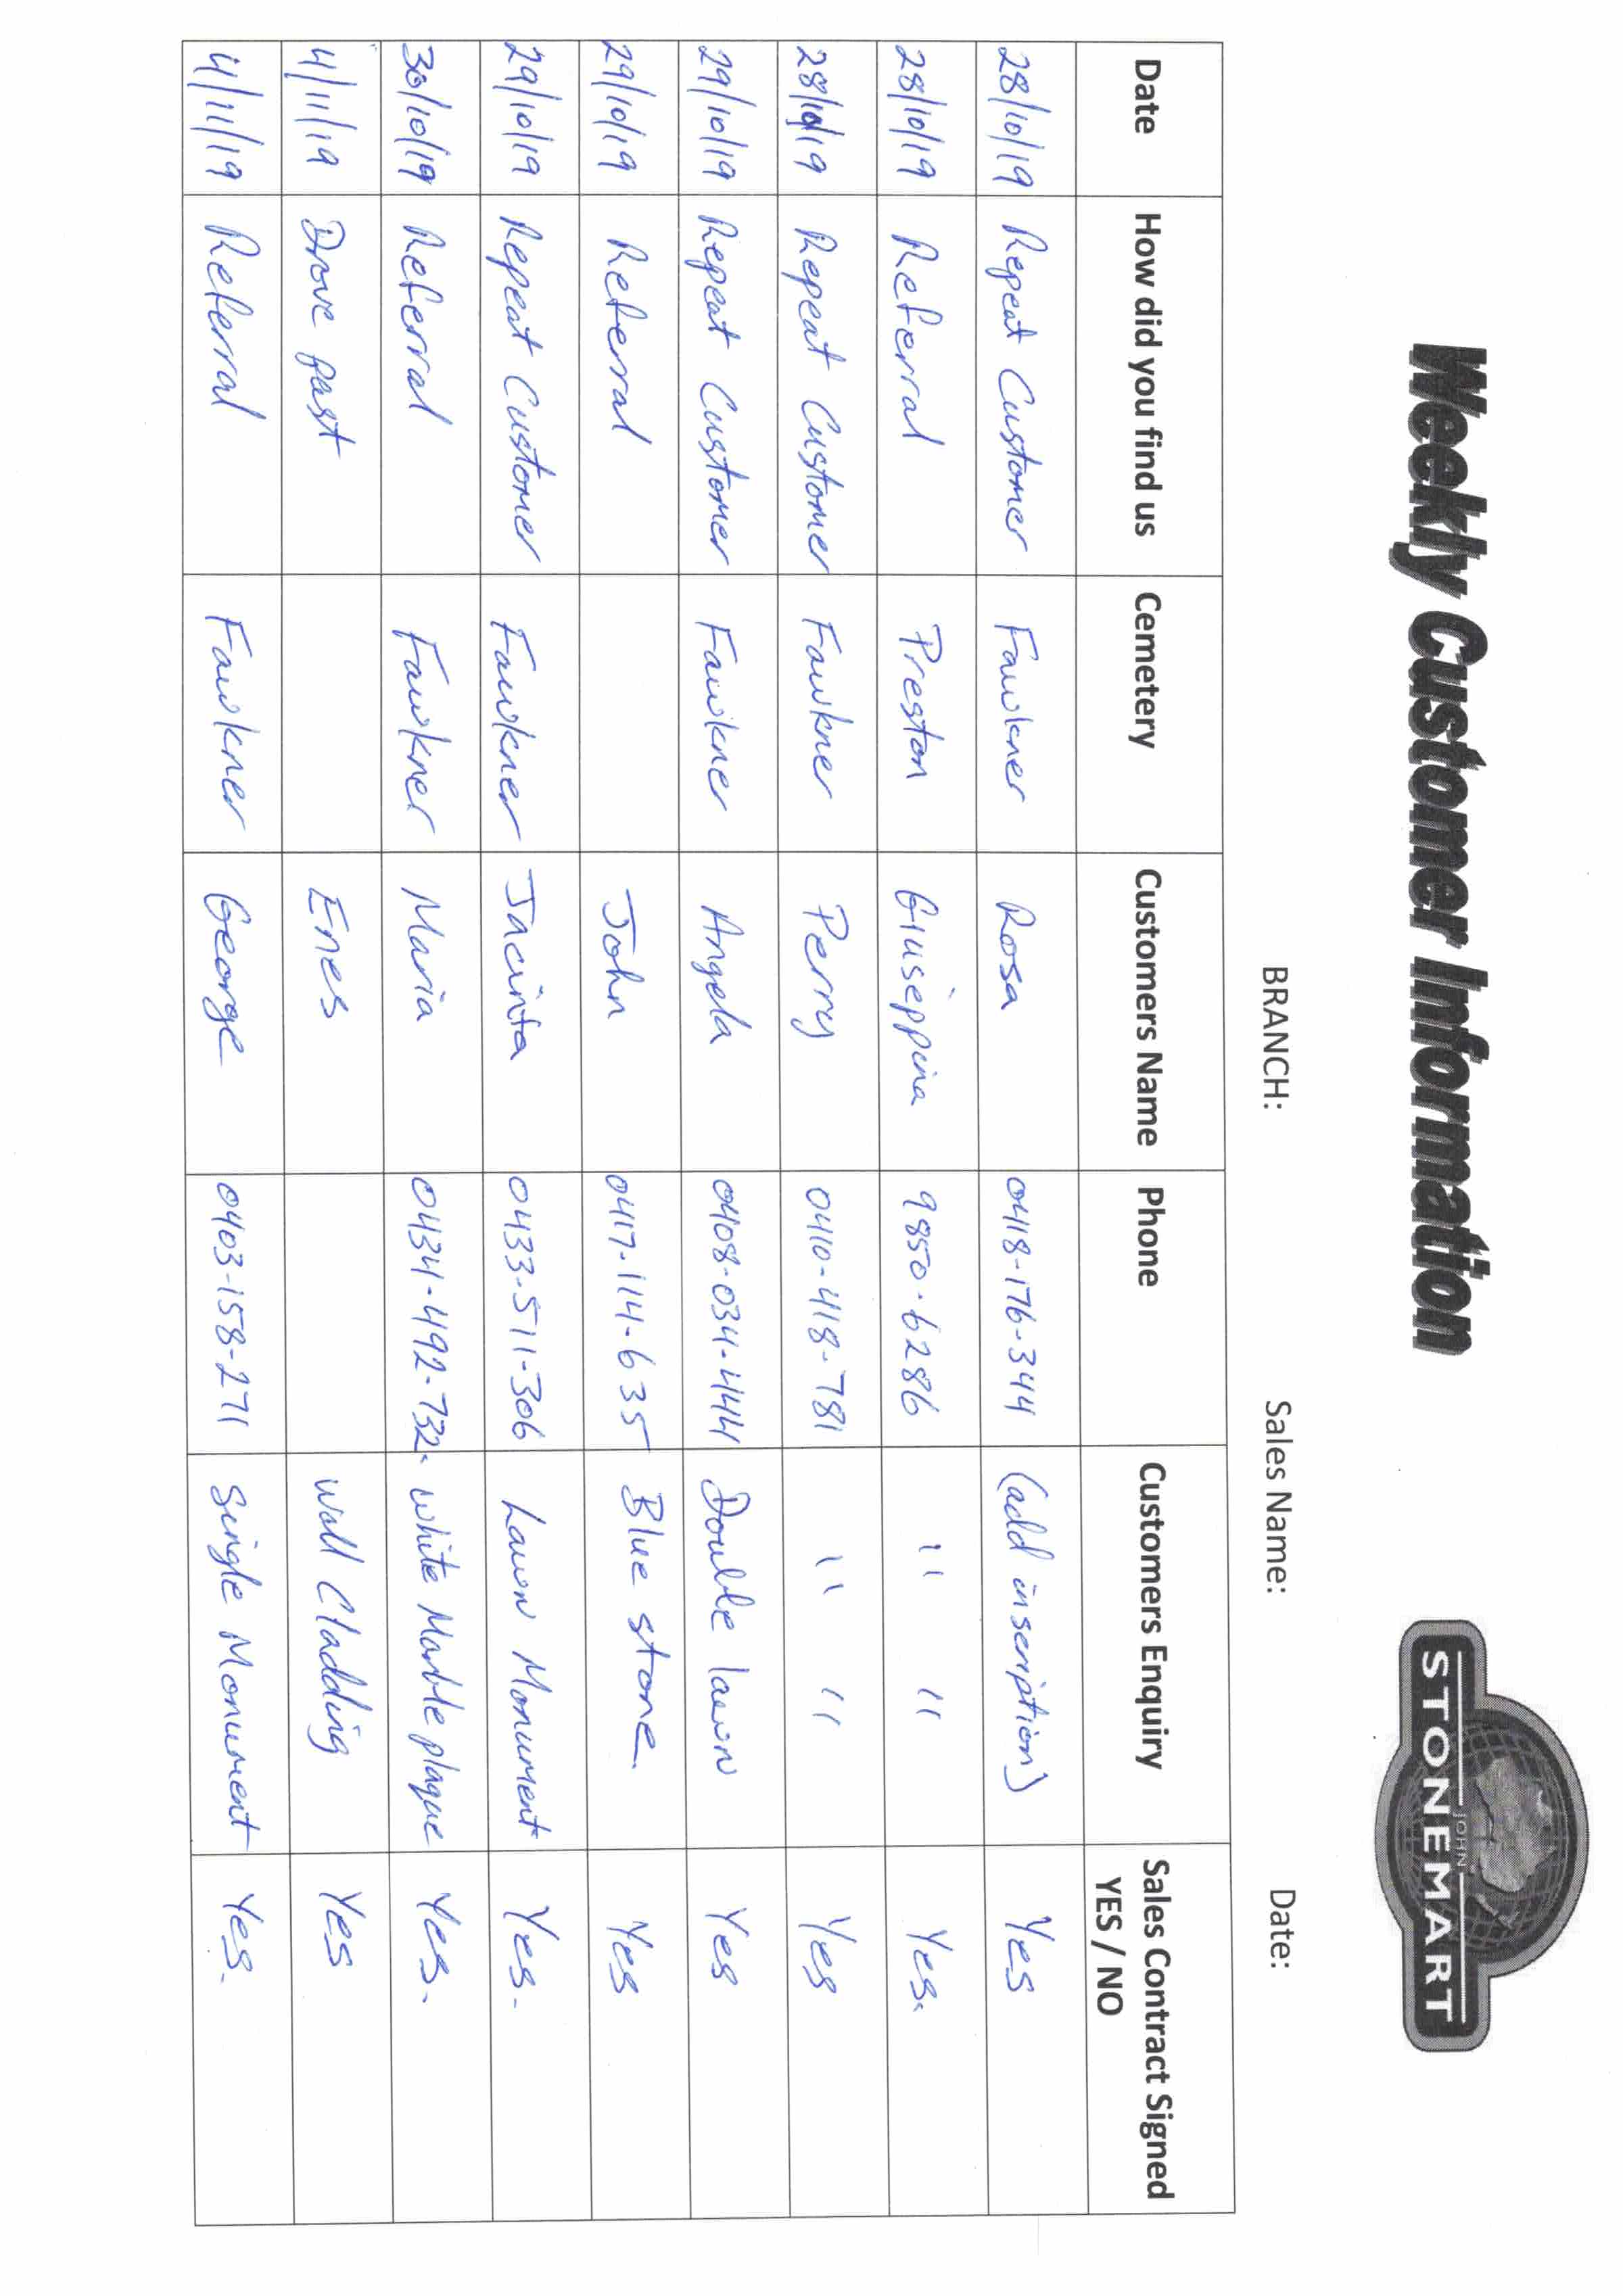 Weekly Customer Information
JOHN
STONEMART
BRANCH: Sales Name: Date:
Date How did you find us Cemetery Customers Name Phone Customers Enquiry Sales Contract Signed YES / NO
28/10/19 Repeat Customer Fawkner Rosa 0418-176-344 (add inscription) Yes
28/10/19 Referral Preston Giuseppina 9850-6286 " " Yes.
28/10/19 Repeat Customer Fawkner Perry 0410-418-781 " " Yes
29/10/19 Repeat Customer Fawkner Angela 0408-034-444 Double lawn Yes
29/10/19 Referral John 0417-114-635 Blue stone. Yes
29/10/19 Repeat Customer Fawkner Jacinta 0433-511-306 Lawn Monument Yes.
30/10/19 Referral Fawkner Maria 0434-492-732. white Marble plaque Yes.
4/11/19 Drove past Enes Wall Cladding Yes
4/11/19 Referral Fawkner George 0403-158-271 Single Monument Yes.